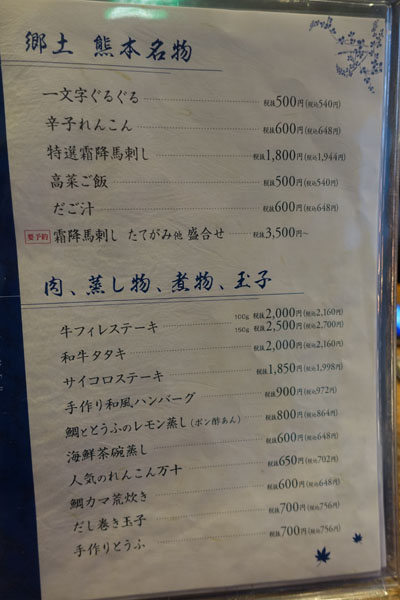 郷土 熊本名物
一文字ぐるぐる 税抜500円(税込540円)
辛子れんこん 税抜600円(税込648円)
特選霜降馬刺し 税抜1,800円(税込1,944円)
高菜ご飯 税抜500円(税込540円)
だご汁 税抜600円(税込648円)
要予約 霜降馬刺し たてがみ他 盛合せ 税抜3,500円〜
肉、蒸し物、煮物、玉子
牛フィレステーキ 100g 税抜2,000円(税込2,160円)
150g 税抜2,500円(税込2,700円)
和牛タタキ 税抜2,000円(税込2,160円)
サイコロステーキ 税抜1,850円(税込1,998円)
手作り和風ハンバーグ 税抜900円(税込972円)
鯛ととうふのレモン蒸し(ポン酢あん) 税抜800円(税込864円)
海鮮茶碗蒸し 税抜600円(税込648円)
人気のれんこん万十 税抜650円(税込702円)
鯛カマ荒炊き 税抜600円(税込648円)
だし巻き玉子 税抜700円(税込756円)
手作りとうふ 税抜700円(税込756円)